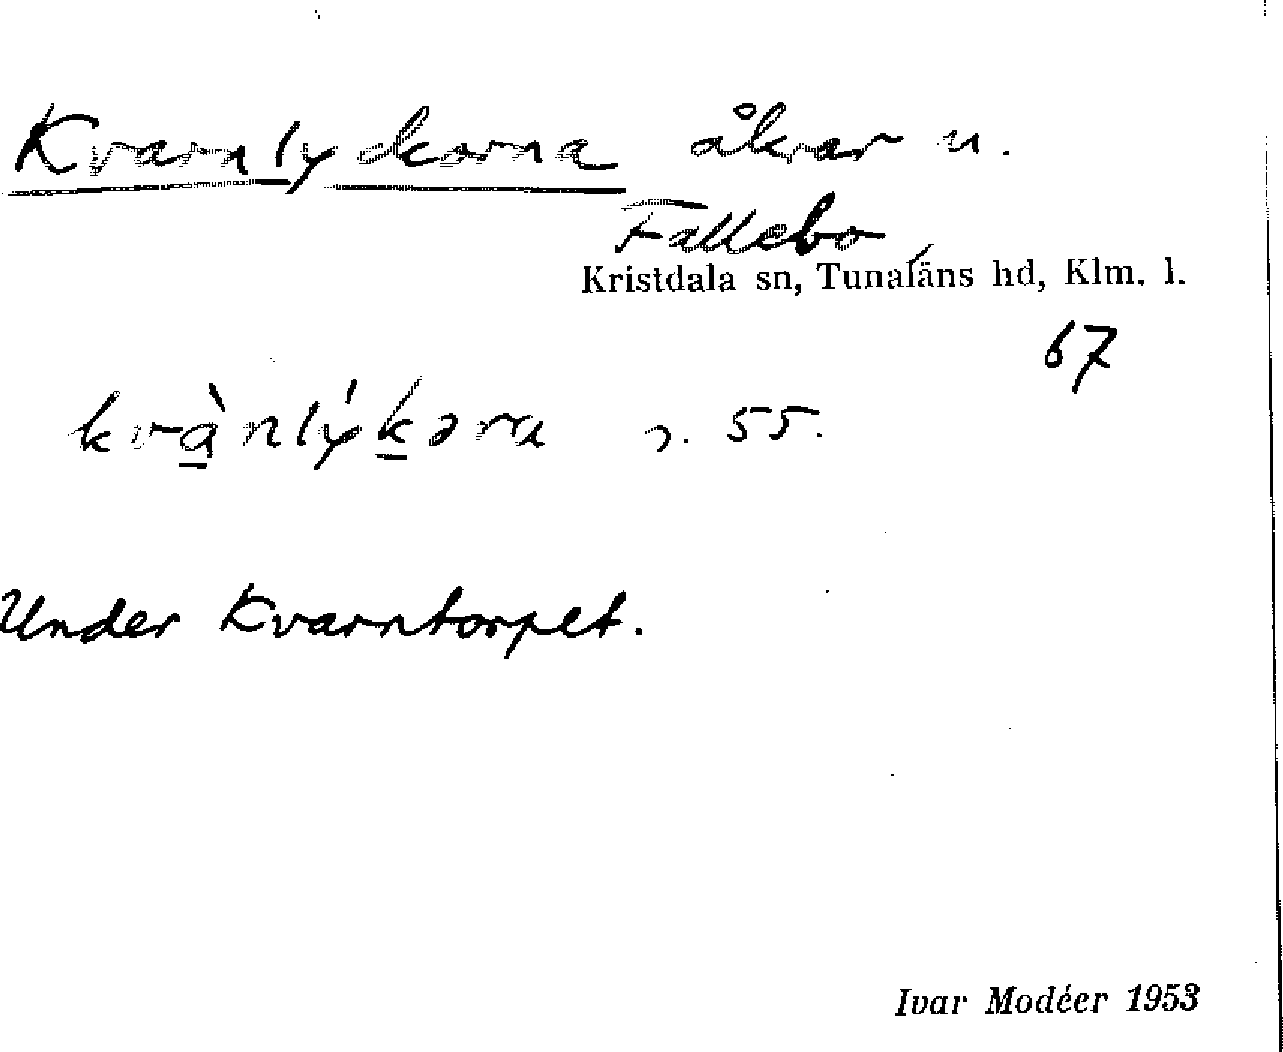 Kvarnlyckorna åkrar u.
Fallebo
Kristdala sn, Tunaläns hd, Klm. l.
67
kvà̱nlýḵəra 2. 55.
Under Kvarntorpet.
Ivar Modéer 1953